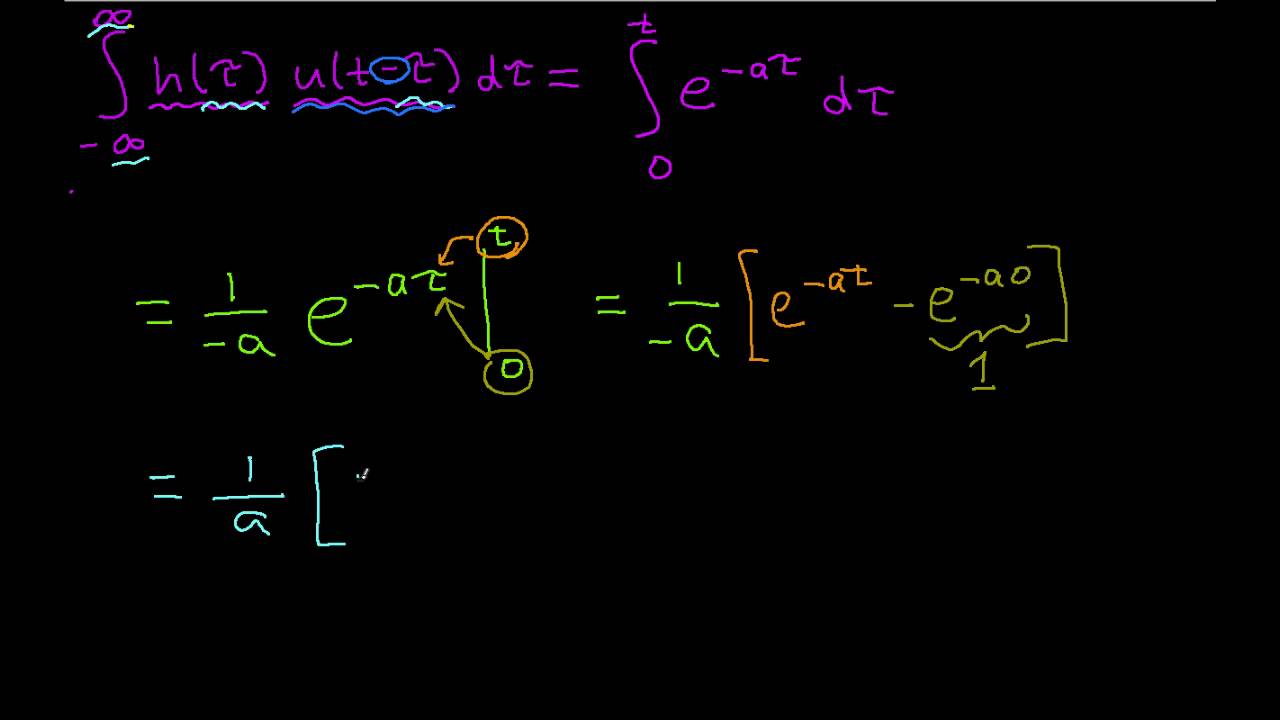 ∫_{-∞}^{∞} h(τ) u(t-τ) dτ = ∫_{0}^{t} e^{-aτ} dτ
= 1/-a e^{-aτ} |_{0}^{t} = 1/-a [e^{-at} - e^{-a0}]
1
= 1/a [